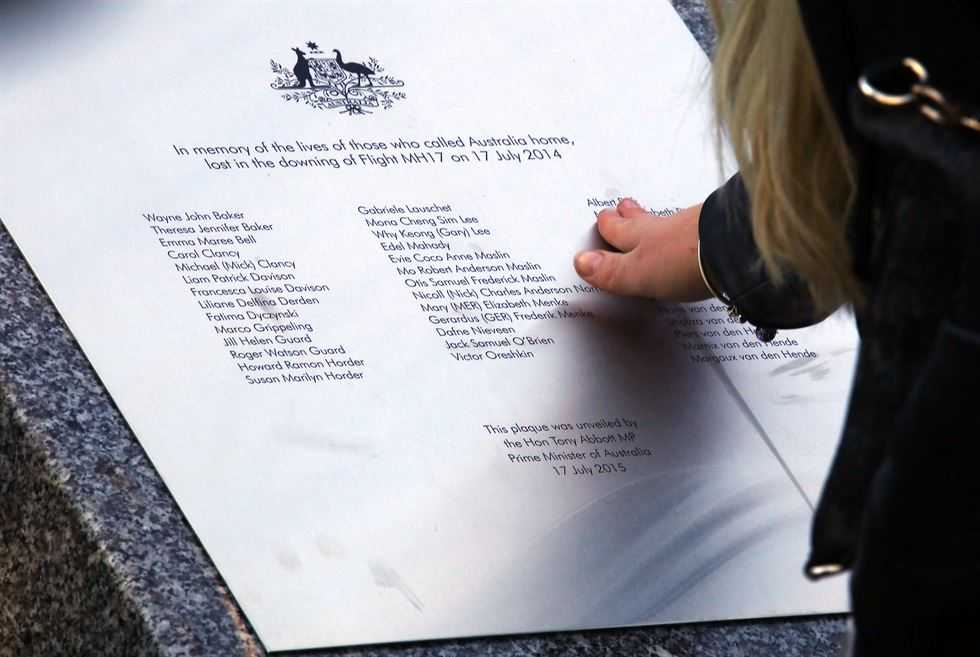 AUSTRALIA
In memory of the lives of those who called Australia home,
lost in the downing of Flight MH17 on 17 July 2014
Wayne John Baker
Theresa Jennifer Baker
Emma Maree Bell
Carol Clancy
Michael (Mick) Clancy
Liam Patrick Davison
Francesca Louise Davison
Liliane Delfina Derden
Fatima Dyczynski
Marco Grippeling
Jill Helen Guard
Roger Watson Guard
Howard Ramon Horder
Susan Marilyn Horder
Gabriele Lauschet
Mona Cheng Sim Lee
Why Keong (Gary) Lee
Edel Mahady
Evie Coco Anne Maslin
Mo Robert Anderson Maslin
Otis Samuel Frederick Maslin
Nicoll (Nick) Charles Anderson
Mary (MER) Elizabeth Menke
Gerardus (GER) Frederik Menke
Dafne Nieveen
Jack Samuel O'Brien
Victor Oreshkin
Albert
van den
van den
van den Hende
Marnix van den Hende
Margaux van den Hende
This plaque was unveiled by
the Hon Tony Abbott MP
Prime Minister of Australia
17 July 2015